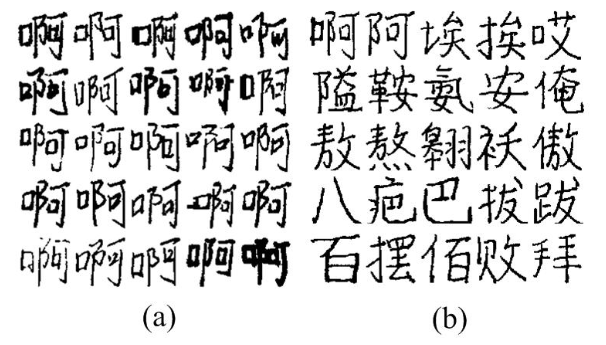 啊啊啊啊啊
啊啊啊啊啊
啊啊啊啊啊
啊啊啊啊啊
啊啊啊啊啊
(a)
啊阿埃挨哎
隘鞍氨安俺
敖熬翱袄傲
八疤巴拔跋
百摆佰败拜
(b)